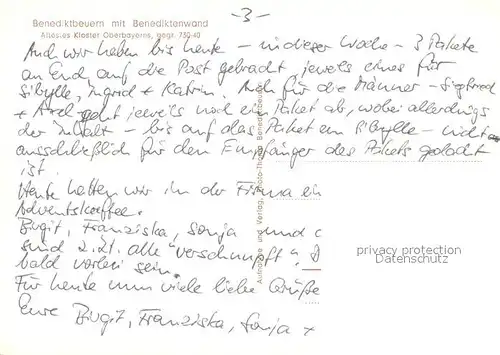 - 3 -
Benediktbeuern mit Benediktenwand
Ältestes Kloster Oberbayerns, gegr. 739-40
Auch wir haben bis heute - in dieser Woche - 3 Pakete
an Euch auf die Post gebracht jeweils eines für
Sibylle, Ingrid + Katrin. Auch für die Männer - Siegfried
+ Axel geht jeweils noch ein Paket ab, wobei allerdings
der Inhalt - bis auf das Paket an Sibylle - nicht
ausschließlich für den Empfänger des Pakets gedacht
ist.
Heute hatten wir in der Firma ein
Adventskaffee.
Birgit, Franziska, Sonja und
sind z.Zt. alle "verschnupft".
bald vorbei sein.
Für heute nun viele liebe Grüße
Eure Birgit, Franziska, Sonja +
Aufnahme und Verlag, Foto-Thoma, Benediktbeuern
privacy protection
Datenschutz